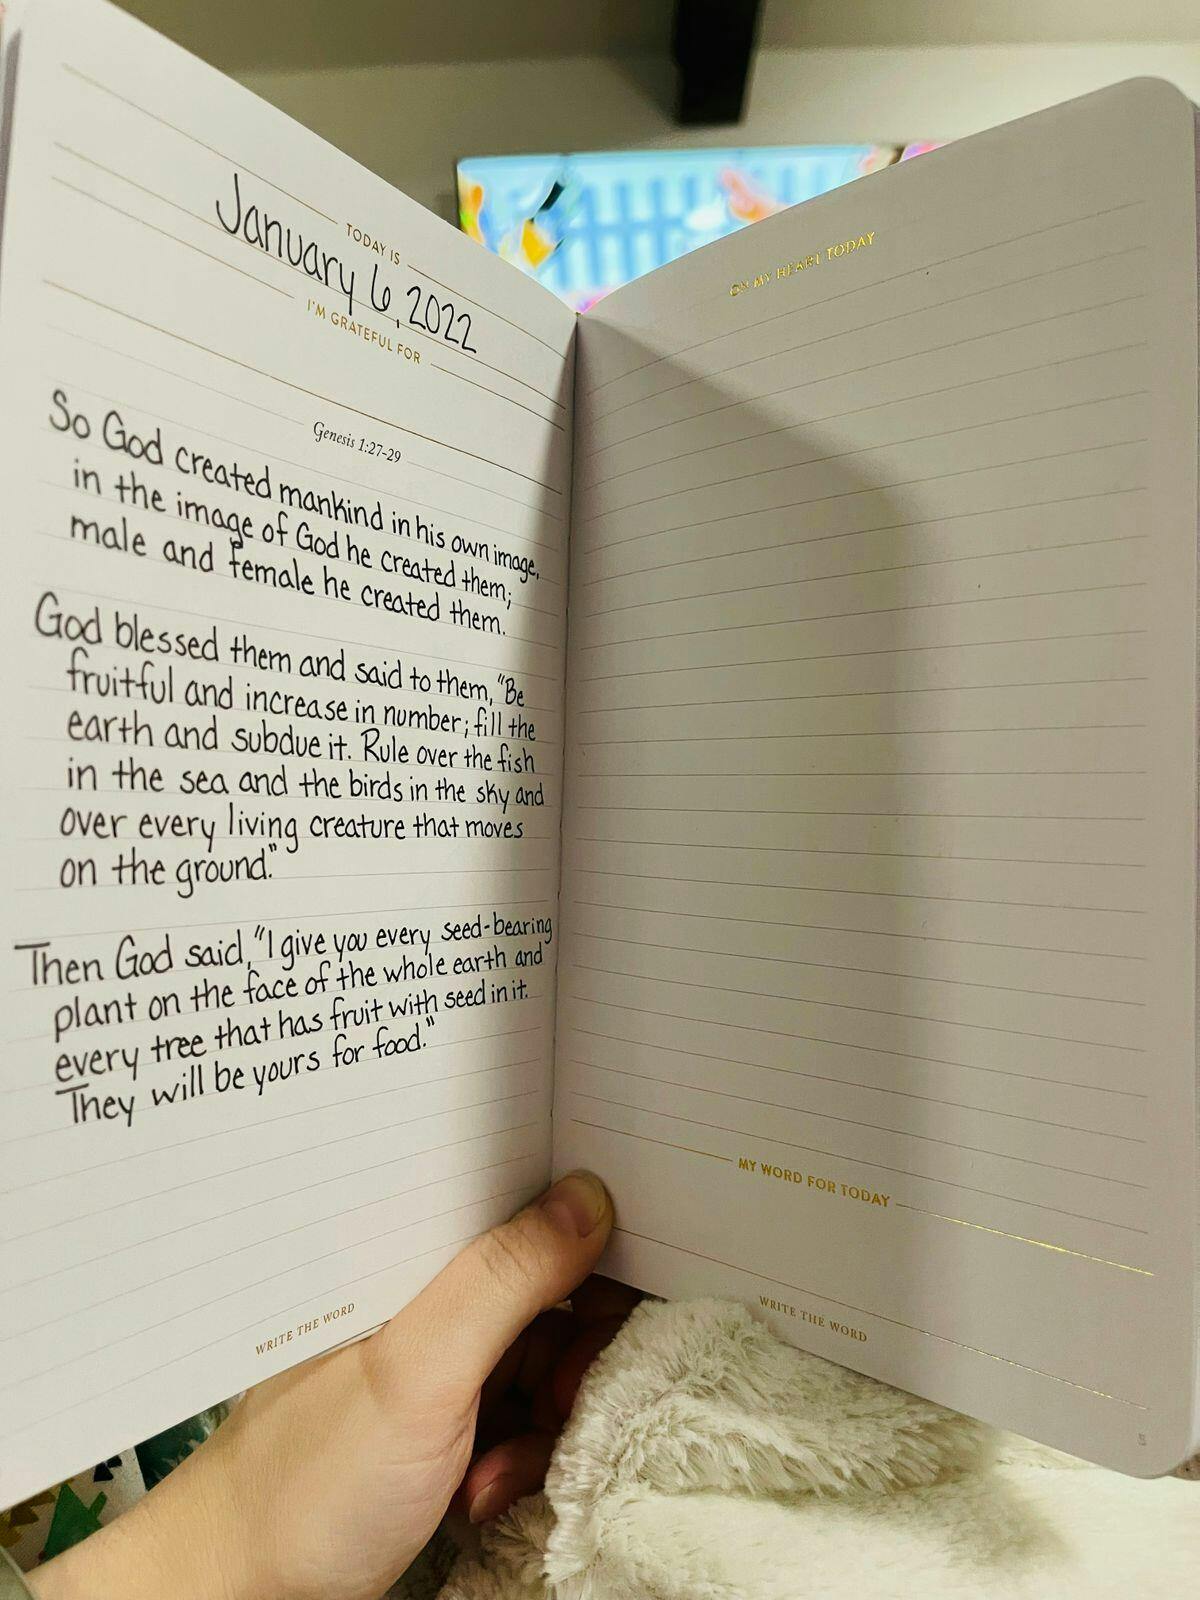 TODAY IS
January 6, 2022
I'M GRATEFUL FOR
Genesis 1:27-29
So God created mankind in his own image,
in the image of God he created them;
male and female he created them.
God blessed them and said to them, "Be
fruitful and increase in number; fill the
earth and subdue it. Rule over the fish
in the sea and the birds in the sky and
over every living creature that moves
on the ground."
Then God said, "I give you every seed-bearing
plant on the face of the whole earth and
every tree that has fruit with seed in it.
They will be yours for food."
WRITE THE WORD
ON MY HEART TODAY
MY WORD FOR TODAY
WRITE THE WORD
5